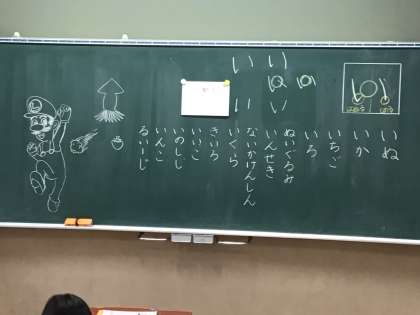 いぬ
いか
いちご
いろ
ぬいぐるみ
いんせき
ないかけんしん
いくら
きいろ
いいこ
いのしし
いんこ
るいーじ
いい
いい
L